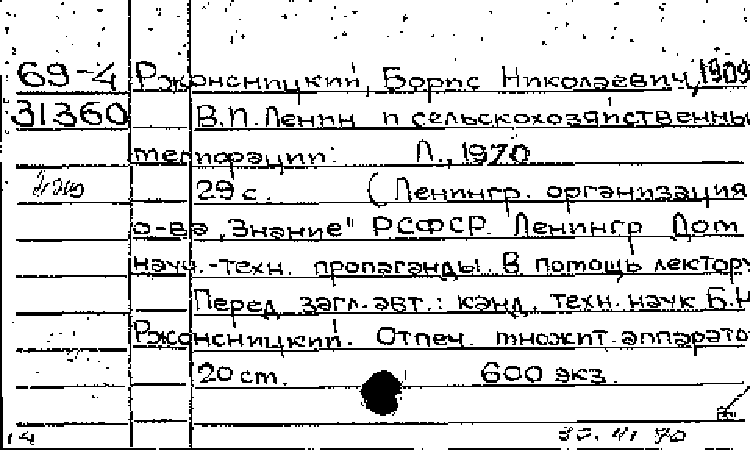 69-4 Ржонсницкий, Борис Николаевич, 1909
31360 В.И. Ленин и сельскохозяйственны
мелиорации. Л., 1970
29 с. (Ленингр. организация
о-ва "Знание" РСФСР. Ленингр Дом
науч.-техн. пропаганды. В помощь лектору
Перед загл. авт.: канд. техн. наук Б.Н
Ржонсницкий. Отпеч. множит. аппарато
20 ст. 600 экз.